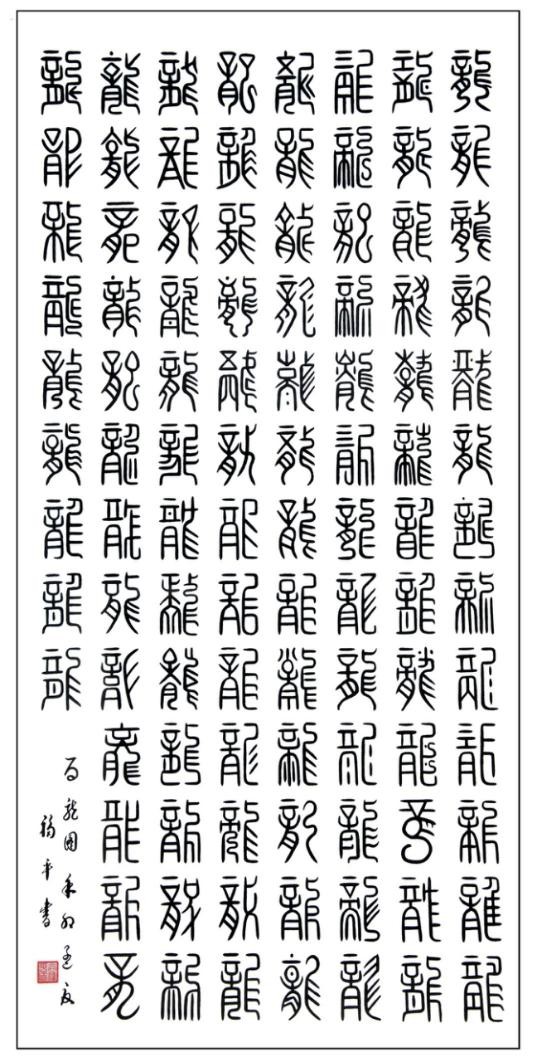 龍龍龍龍龍龍龍龍龍龍龍龍龍
龍龍龍龍龍龍龍龍龍龍龍龍龍
龍龍龍龍龍龍龍龍龍龍龍龍龍
龍龍龍龍龍龍龍龍龍龍龍龍龍
龍龍龍龍龍龍龍龍龍龍龍龍龍
龍龍龍龍龍龍龍龍龍龍龍龍龍
龍龍龍龍龍龍龍龍龍龍龍龍龍
龍龍龍龍龍龍龍龍龍
百龍圖辛卯孟夏
福平書